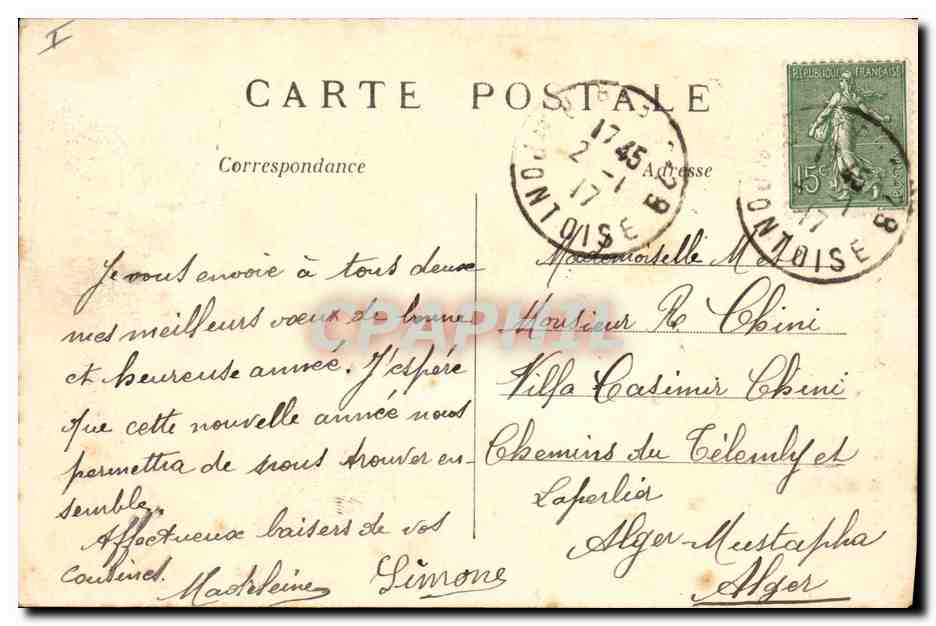 I
CARTE POSTALE
Correspondance
Adresse
RÉPUBLIQUE FRANÇAISE
15c
17 45
2 - 1
17
PONTOISE
17
PONTOISE
Je vous envoie à tous deux
mes meilleurs vœux de bonne
et heureuse année. J'espère
que cette nouvelle année nous
permettra de nous trouver en-
semble.
Affectueux baisers de vos
cousines.
Madeleine Simone
Mademoiselle
Monsieur R Chini
Villa Casimir Chini
Chemins du Télemly et
Laperlier
Alger-Mustapha
Alger
CPAPHIL